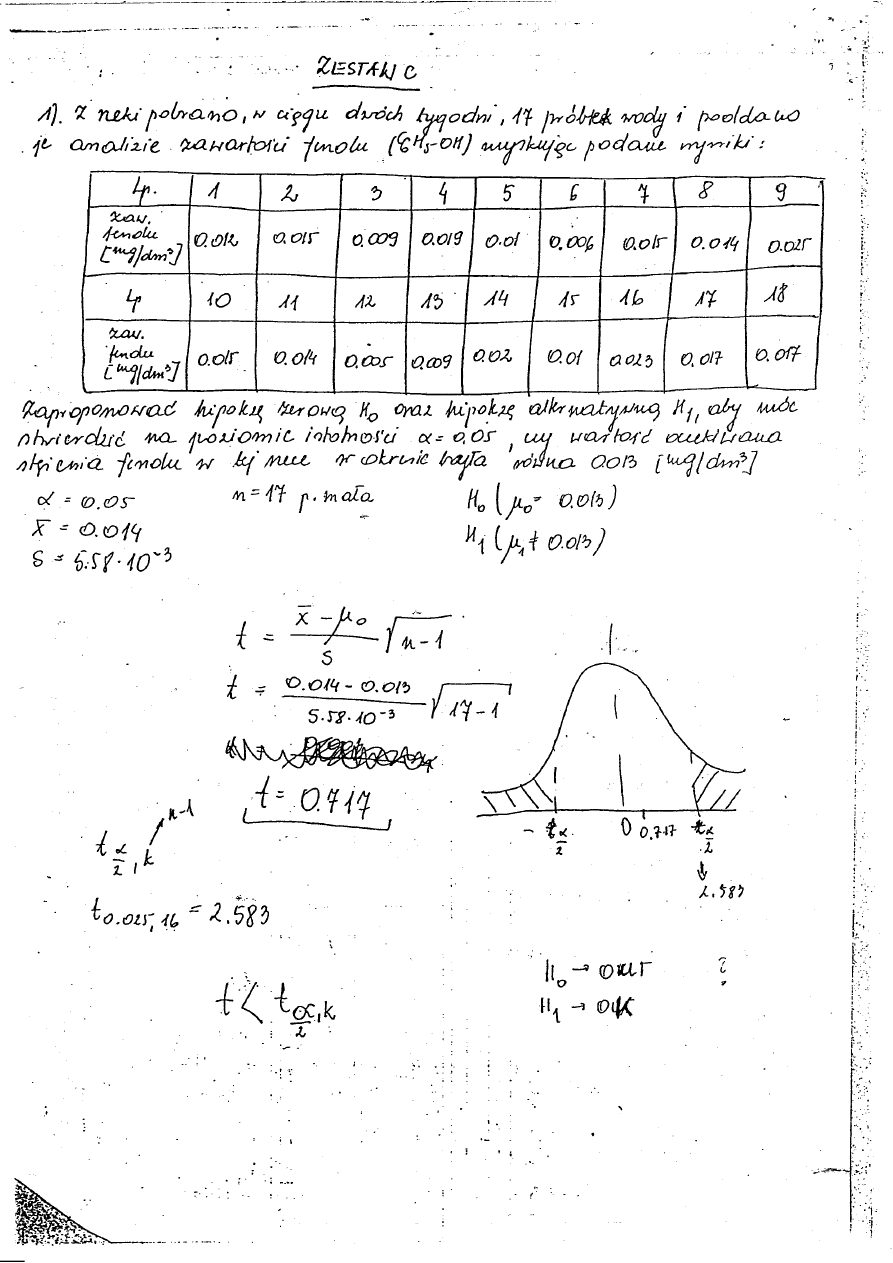 ZESTAW C
1). Z rzeki pobrano, w ciągu dwóch tygodni, 17 próbek wody i poddano
je analizie zawartości fenolu (C6H5-OH) uzyskując podane wyniki:
Lp. 1 2 3 4 5 6 7 8 9
zaw. fenolu [mg/dm³] 0.012 0.015 0.009 0.019 0.01 0.006 0.015 0.014 0.025
Lp 10 11 12 13 14 15 16 17 18
zaw. fenolu [mg/dm³] 0.015 0.014 0.005 0.009 0.02 0.01 0.023 0.017 0.017
Zaproponować hipotezę zerową H₀ oraz hipotezę alternatywną H₁, aby móc
stwierdzić na poziomie istotności α = 0,05, czy wartość oczekiwana
stężenia fenolu w tej rzece w okresie była równa 0.013 [mg/dm³]
α = 0.05 n = 17 p. mała H₀ (μ₀ = 0.013)
x̄ = 0.014 H₁ (μ₁ ≠ 0.013)
S = 5.58·10⁻³
t = (x̄ - μ₀)/S √(n-1)
t = (0.014 - 0.013)/(5.58·10⁻³) √(17-1)
t = 0.717
n-1
t α/2, k
-t α/2 0 0.717 t α/2
2.583
t 0.025, 16 = 2.583
H₀ → ?
t < t α/2, k
H₁ →